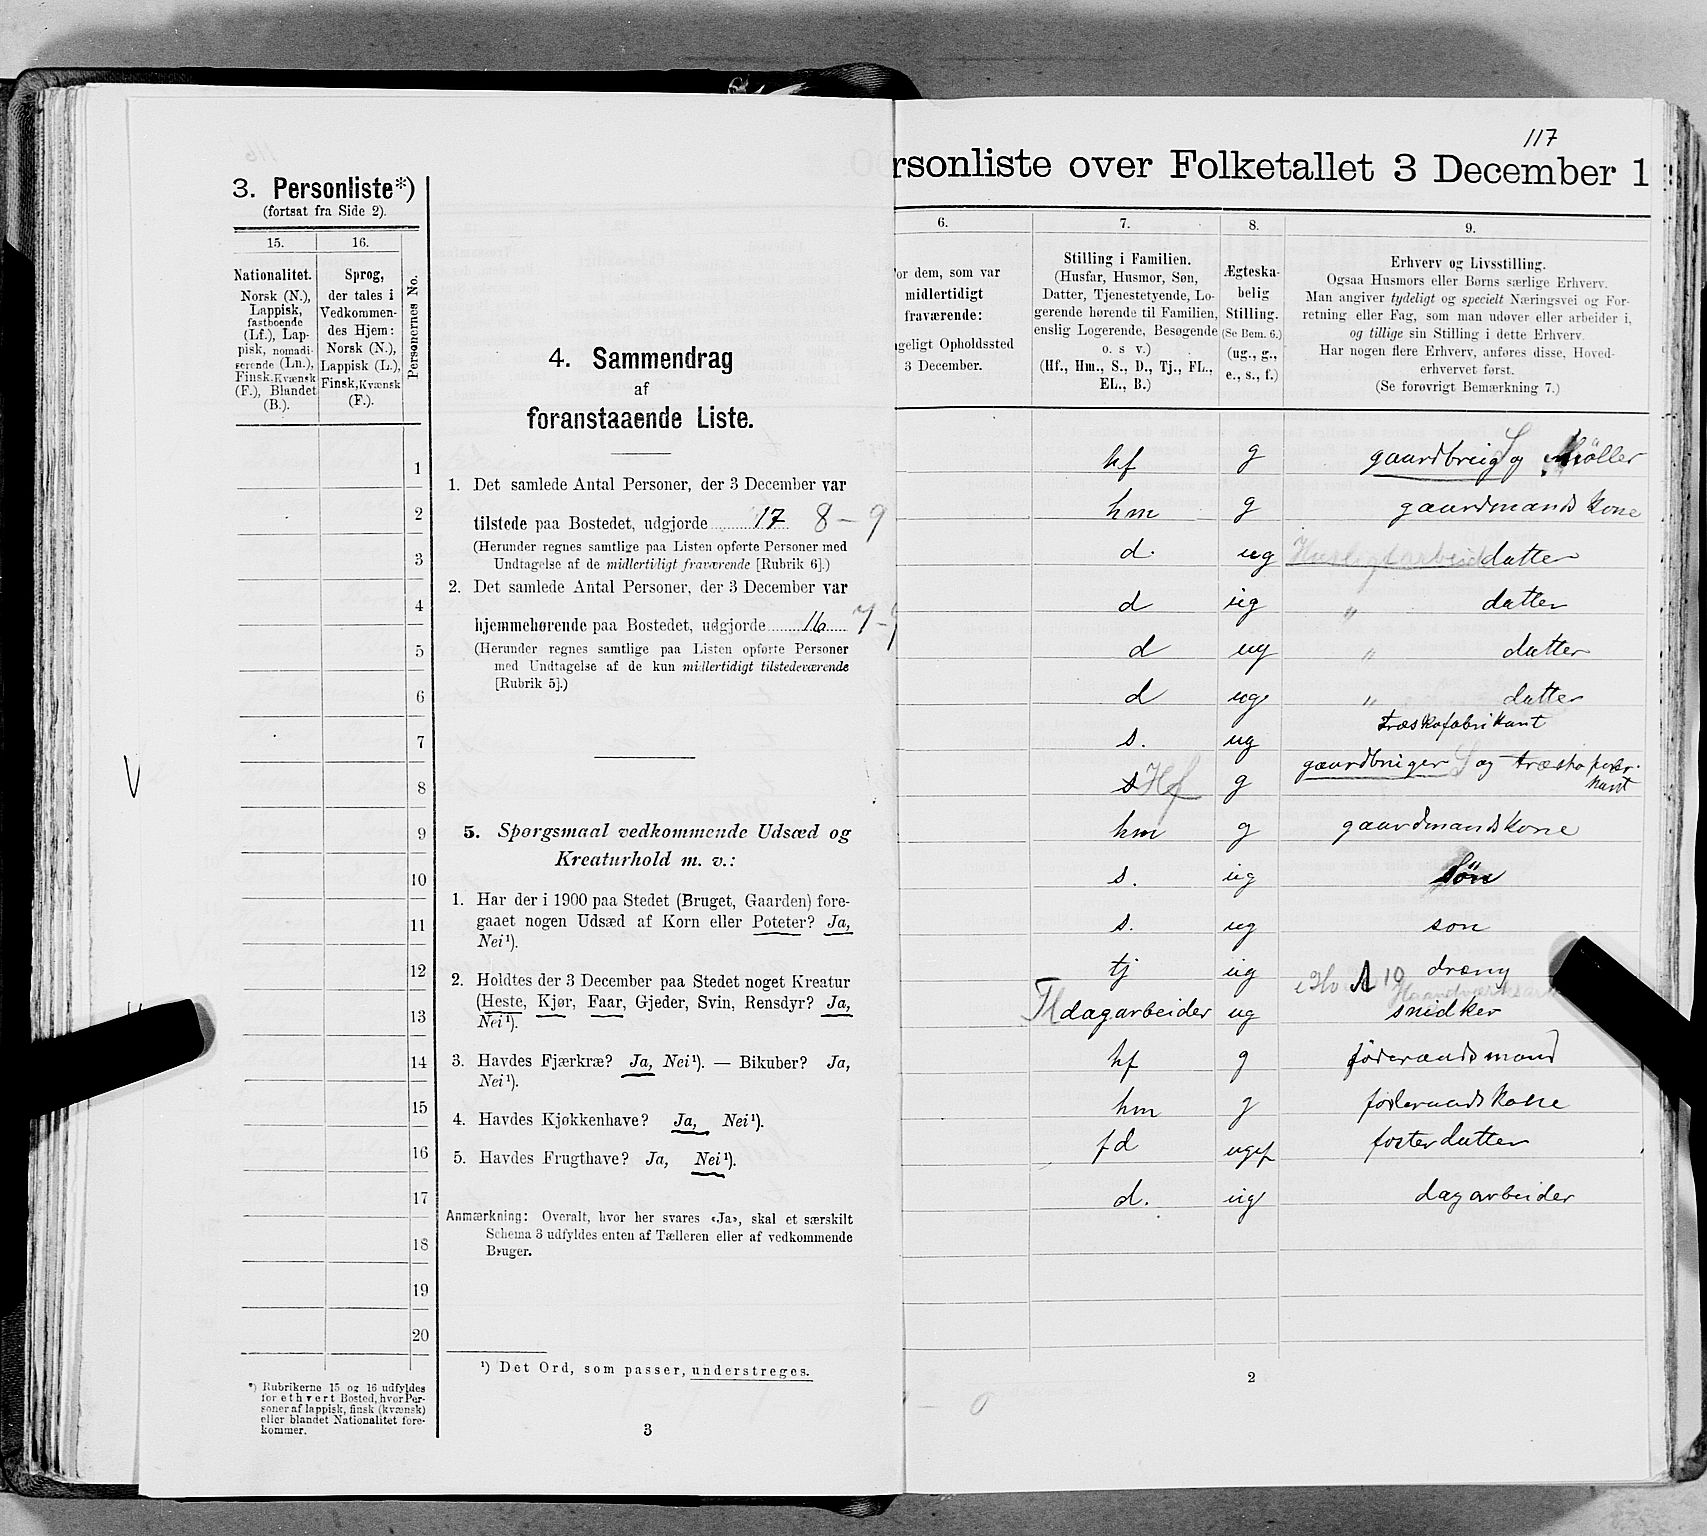 3. Personliste*)
(fortsat fra Side 2).
15.
16.
Personernes No.
Nationalitet.
Norsk (N.),
Lappisk,
fastboende
(Lf.), Lap-
pisk, nomadi-
serende (Ln.),
Finsk, Kvænsk
(F.), Blandet
(B.).
Sprog,
der tales i
Vedkommen-
des Hjem:
Norsk (N.),
Lappisk (L.),
Finsk, Kvænsk
(F.).
1
2
3
4
5
6
7
8
9
10
11
12
13
14
15
16
17
18
19
20
*) Rubrikerne 15 og 16 udfyldes
for ethvert Bosted, hvor Per-
soner af lappisk, finsk (kvænsk)
eller blandet Nationalitet fore-
kommer.
4. Sammendrag
af
foranstaaende Liste.
1. Det samlede Antal Personer, der 3 December var
tilstede paa Bostedet, udgjorde 17 8 - 9
(Herunder regnes samtlige paa Listen opførte Personer med
Undtagelse af de midlertidigt fraværende [Rubrik 6].)
2. Det samlede Antal Personer, der 3 December var
hjemmehørende paa Bostedet, udgjorde 16 7-9
(Herunder regnes samtlige paa Listen opførte Personer
med Undtagelse af de kun midlertidigt tilstedeværende
[Rubrik 5].)
5. Spørgsmaal vedkommende Udsæd og
Kreaturhold m. v.:
1. Har der i 1900 paa Stedet (Bruget, Gaarden) fore-
gaaet nogen Udsæd af Korn eller Poteter? Ja,
Nei¹).
2. Holdtes der 3 December paa Stedet noget Kreatur
(Heste, Kjør, Faar, Gjeder, Svin, Rensdyr? Ja,
Nei¹).
3. Havdes Fjærkræ? Ja, Nei¹). — Bikuber? Ja,
Nei¹).
4. Havdes Kjøkkenhave? Ja, Nei¹).
5. Havdes Frugthave? Ja, Nei¹).
Anmærkning: Overalt, hvor her svares «Ja», skal et særskilt
Schema 3 udfyldes enten af Tælleren eller af vedkommende
Bruger.
¹) Det Ord, som passer, understreges.
3
117
rsonliste over Folketallet 3 December 1
6.
7.
8.
9.
or dem, som var
midlertidigt
fraværende:
geligt Opholdssted
3 December.
Stilling i Familien.
(Husfar, Husmor, Søn,
Datter, Tjenestetyende, Lo-
gerende hørende til Familien,
enslig Logerende, Besøgende
o. s v.)
(Hf., Hm., S., D., Tj., FL.,
EL., B.)
Ægteska-
belig
Stilling.
(Se Bem. 6.)
(ug., g.,
e., s., f.)
Erhverv og Livsstilling.
Ogsaa Husmors eller Børns særlige Erhverv.
Man angiver tydeligt og specielt Næringsvei og For-
retning eller Fag, som man udøver eller arbeider i,
og tillige sin Stilling i dette Erhverv.
Har nogen flere Erhverv, anføres disse, Hoved-
erhvervet først.
(Se forøvrigt Bemærkning 7.)
hf g gaardbrug S og Möller
hm g gaardmands kone
d. ug Husligt arbeid datter
d ug " datter
d ug " datter
d ug " datter
s. ug træskofabrikant
s Hf g gaardbruger S og træskofabri-
kant
hm g gaardmandskone
s. ug Sön
s. ug son
tj ug dræng
Fl dagarbeider ug snidker
hf g föderaadsmand
hm g föderaadskone
fd ug foster datter
d. ug dagarbeider
2